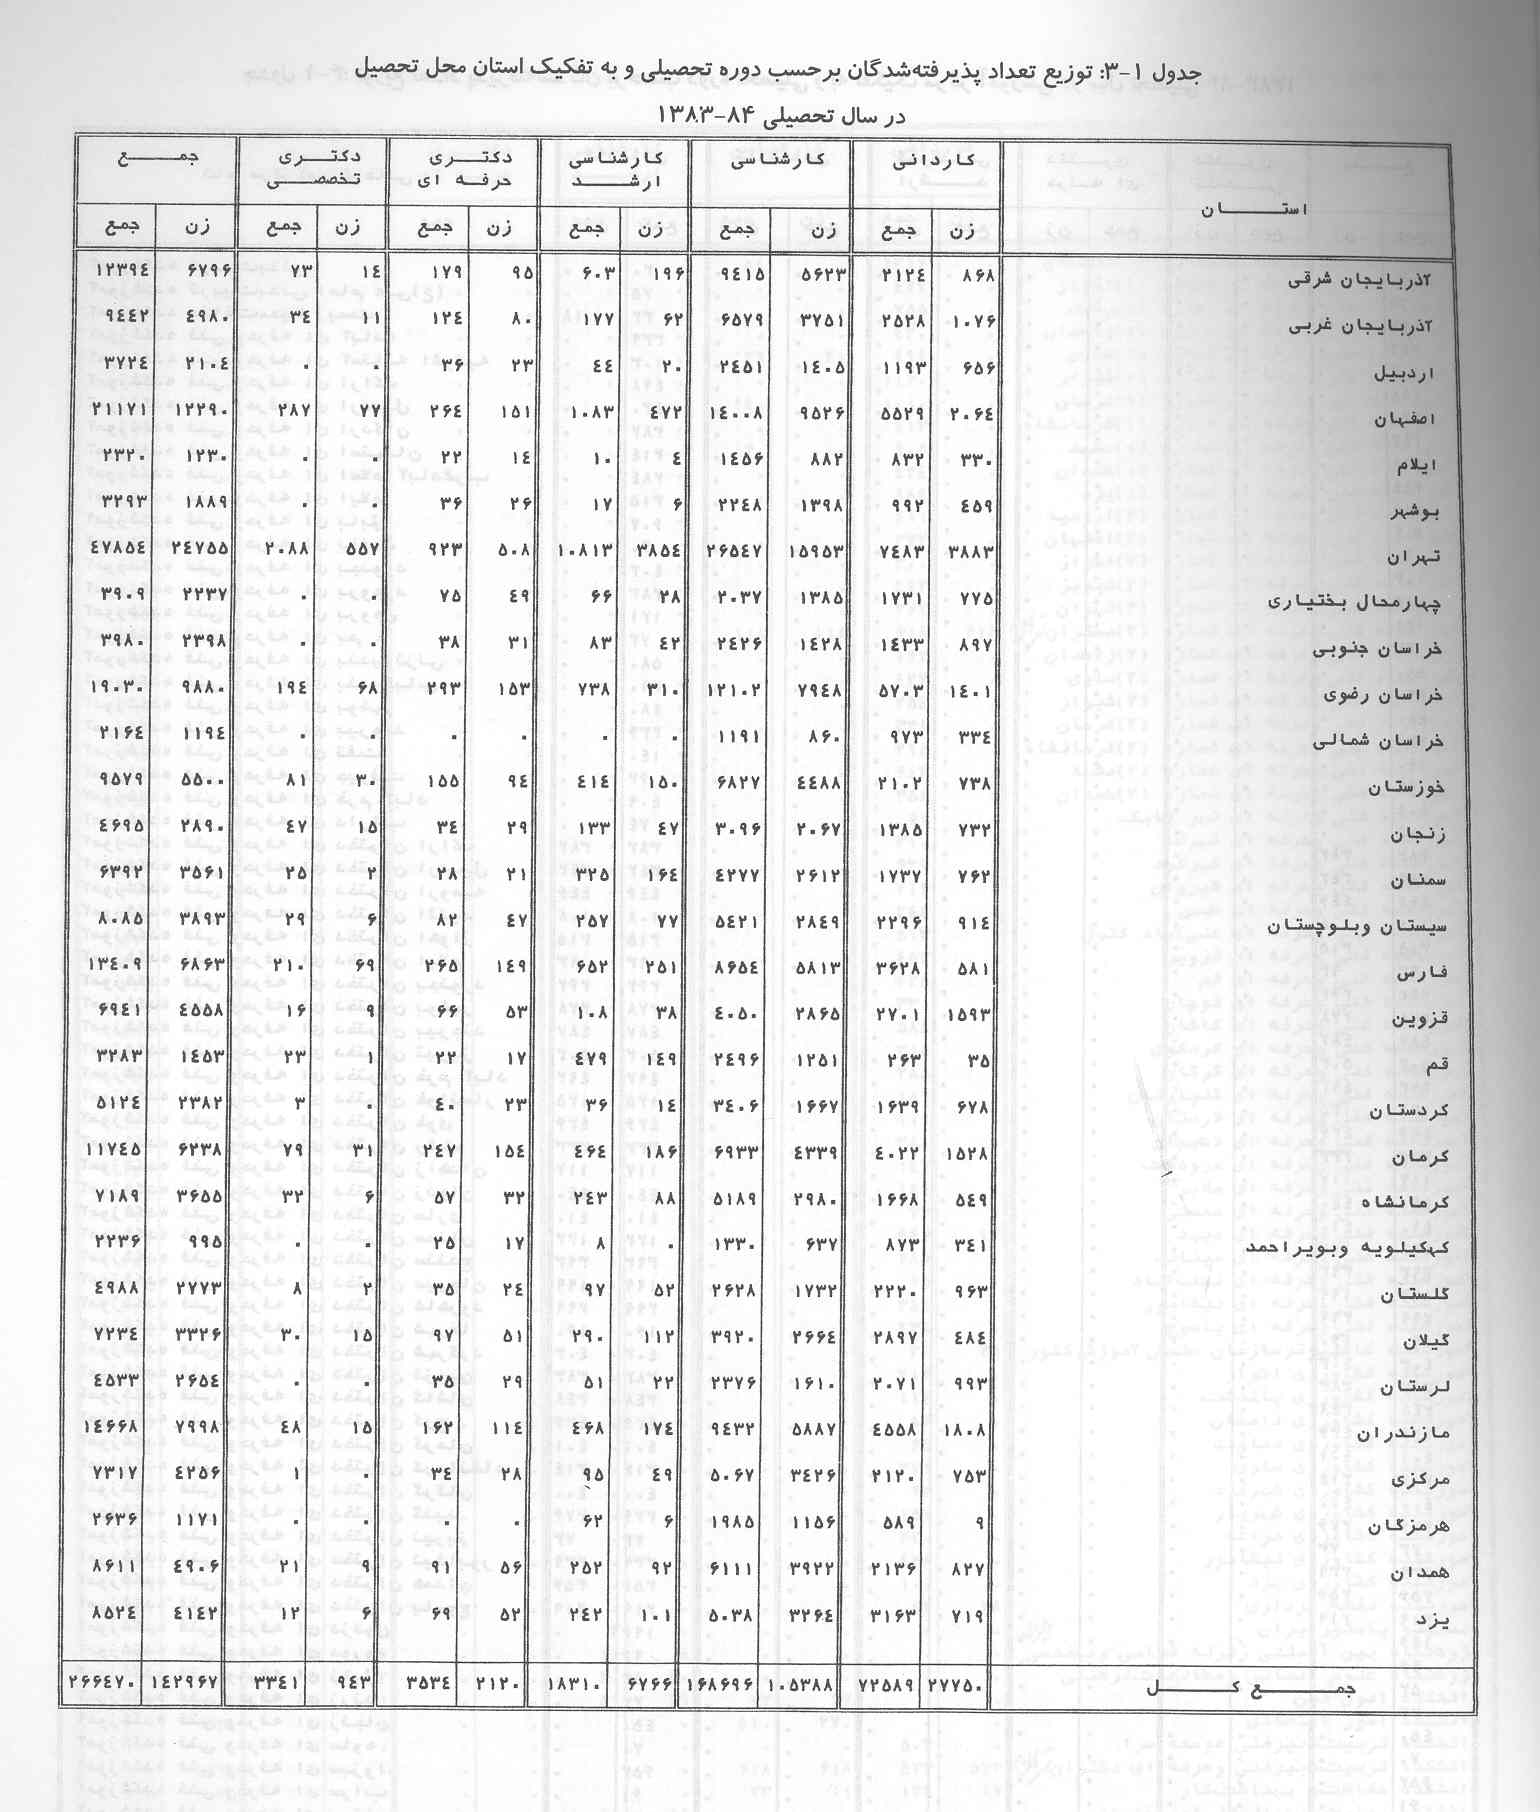 جدول ۱-۳: توزیع تعداد پذیرفته‌شدگان برحسب دوره تحصیلی و به تفکیک استان محل تحصیل
در سال تحصیلی ۸۴-۱۳۸۳
استان کاردانی کارشناسی کارشناسی ارشد دکتری حرفه ای دکتری تخصصی جمع
زن جمع زن جمع زن جمع زن جمع زن جمع زن جمع
آذربایجان شرقی ۸۶۸ ۲۱۲٤ ۵۶۲۳ ۹٤۱۵ ۱۹۶ ۶۰۳ ۹۵ ۱۷۹ ۱٤ ۷۳ ۶۷۹۶ ۱۲۳۹٤
آذربایجان غربی ۱۰۷۶ ۲۵۲۸ ۳۷۵۱ ۶۵۷۹ ۶۲ ۱۷۷ ۸۰ ۱۲٤ ۱۱ ۳٤ ٤۹۸۰ ۹٤٤۲
اردبیل ۶۵۶ ۱۱۹۳ ۱٤۰۵ ۲٤۵۱ ۲۰ ٤٤ ۲۳ ۳۶ ۰ ۰ ۲۱۰٤ ۳۷۲٤
اصفهان ۲۰۶٤ ۵۵۲۹ ۹۵۲۶ ۱٤۰۰۸ ٤۷۲ ۱۰۸۳ ۱۵۱ ۲۶٤ ۷۷ ۲۸۷ ۱۲۲۹۰ ۲۱۱۷۱
ایلام ۳۳۰ ۸۳۲ ۸۸۲ ۱٤۵۶ ٤ ۱۰ ۱٤ ۲۲ ۰ ۰ ۱۲۳۰ ۲۳۲۰
بوشهر ٤۵۹ ۹۹۲ ۱۳۹۸ ۲۲٤۸ ۶ ۱۷ ۲۶ ۳۶ ۰ ۰ ۱۸۸۹ ۳۲۹۳
تهران ۳۸۸۳ ۷٤۸۳ ۱۵۹۵۳ ۲۶۵٤۷ ۳۸۵٤ ۱۰۸۱۳ ۵۰۸ ۹۲۳ ۵۵۷ ۲۰۸۸ ۲٤۷۵۵ ٤۷۸۵٤
چهارمحال بختیاری ۷۷۵ ۱۷۳۱ ۱۳۸۵ ۲۰۳۷ ۲۸ ۶۶ ٤۹ ۷۵ ۰ ۰ ۲۲۳۷ ۳۹۰۹
خراسان جنوبی ۸۹۷ ۱٤۳۳ ۱٤۲۸ ۲٤۲۶ ٤۲ ۸۳ ۳۱ ۳۸ ۰ ۰ ۲۳۹۸ ۳۹۸۰
خراسان رضوی ۱٤۰۱ ۵۷۰۳ ۷۹٤۸ ۱۲۱۰۲ ۳۱۰ ۷۳۸ ۱۵۳ ۲۹۳ ۶۸ ۱۹٤ ۹۸۸۰ ۱۹۰۳۰
خراسان شمالی ۳۳٤ ۹۷۳ ۸۶۰ ۱۱۹۱ ۰ ۰ ۰ ۰ ۰ ۰ ۱۱۹٤ ۲۱۶٤
خوزستان ۷۳۸ ۲۱۰۲ ٤٤۸۸ ۶۸۲۷ ۱۵۰ ٤۱٤ ۹٤ ۱۵۵ ۳۰ ۸۱ ۵۵۰۰ ۹۵۷۹
زنجان ۷۳۲ ۱۳۸۵ ۲۰۶۷ ۳۰۹۶ ٤۷ ۱۳۳ ۲۹ ۳٤ ۱۵ ٤۷ ۲۸۹۰ ٤۶۹۵
سمنان ۷۶۲ ۱۷۳۷ ۲۶۱۲ ٤۲۷۷ ۱۶٤ ۳۲۵ ۲۱ ۲۸ ۲ ۲۵ ۳۵۶۱ ۶۳۹۲
سیستان وبلوچستان ۹۱٤ ۲۲۹۶ ۲۸٤۹ ۵٤۲۱ ۷۷ ۲۵۷ ٤۷ ۸۲ ۶ ۲۹ ۳۸۹۳ ۸۰۸۵
فارس ۵۸۱ ۳۶۲۸ ۵۸۱۳ ۸۶۵٤ ۲۵۱ ۶۵۲ ۱٤۹ ۲۶۵ ۶۹ ۲۱۰ ۶۸۶۳ ۱۳٤۰۹
قزوین ۱۵۹۳ ۲۷۰۱ ۲۸۶۵ ٤۰۵۰ ۳۸ ۱۰۸ ۵۳ ۶۶ ۹ ۱۶ ٤۵۵۸ ۶۹٤۱
قم ۳۵ ۲۶۳ ۱۲۵۱ ۲٤۹۶ ۱٤۹ ٤۷۹ ۱۷ ۲۲ ۱ ۲۳ ۱٤۵۳ ۳۲۸۳
کردستان ۶۷۸ ۱۶۳۹ ۱۶۶۷ ۳٤۰۶ ۱٤ ۳۶ ۲۳ ٤۰ ۰ ۳ ۲۳۸۲ ۵۱۲٤
کرمان ۱۵۲۸ ٤۰۲۲ ٤۳۳۹ ۶۹۳۳ ۱۸۶ ٤۶٤ ۱۵٤ ۲٤۷ ۳۱ ۷۹ ۶۲۳۸ ۱۱۷٤۵
کرمانشاه ۵٤۹ ۱۶۶۸ ۲۹۸۰ ۵۱۸۹ ۸۸ ۲٤۳ ۳۲ ۵۷ ۶ ۳۲ ۳۶۵۵ ۷۱۸۹
کهکیلویه وبویراحمد ۳٤۱ ۸۷۳ ۶۳۷ ۱۳۳۰ ۰ ۸ ۱۷ ۲۵ ۰ ۰ ۹۹۵ ۲۲۳۶
گلستان ۹۶۳ ۲۲۲۰ ۱۷۳۲ ۲۶۲۸ ۵۲ ۹۷ ۲٤ ۳۵ ۲ ۸ ۲۷۷۳ ٤۹۸۸
گیلان ٤۸٤ ۲۸۹۷ ۲۶۶٤ ۳۹۲۰ ۱۱۲ ۲۹۰ ۵۱ ۹۷ ۱۵ ۳۰ ۳۳۲۶ ۷۲۳٤
لرستان ۹۹۳ ۲۰۷۱ ۱۶۱۰ ۲۳۷۶ ۲۲ ۵۱ ۲۹ ۳۵ ۰ ۰ ۲۶۵٤ ٤۵۳۳
مازندران ۱۸۰۸ ٤۵۵۸ ۵۸۸۷ ۹٤۳۲ ۱۷٤ ٤۶۸ ۱۱٤ ۱۶۲ ۱۵ ٤۸ ۷۹۹۸ ۱٤۶۶۸
مرکزی ۷۵۳ ۲۱۲۰ ۳٤۲۶ ۵۰۶۷ ٤۹ ۹۵ ۲۸ ۳٤ ۰ ۱ ٤۲۵۶ ۷۳۱۷
هرمزگان ۹ ۵۸۹ ۱۱۵۶ ۱۹۸۵ ۶ ۶۲ ۰ ۰ ۰ ۰ ۱۱۷۱ ۲۶۳۶
همدان ۸۲۷ ۲۱۳۶ ۳۹۲۲ ۶۱۱۱ ۹۲ ۲۵۲ ۵۶ ۹۱ ۹ ۲۱ ٤۹۰۶ ۸۶۱۱
یزد ۷۱۹ ۳۱۶۳ ۳۲۶٤ ۵۰۳۸ ۱۰۱ ۲٤۲ ۵۲ ۶۹ ۶ ۱۲ ٤۱٤۲ ۸۵۲٤
جمع کل ۲۷۷۵۰ ۷۲۵۸۹ ۱۰۵۳۸۸ ۱۶۸۶۹۶ ۶۷۶۶ ۱۸۳۱۰ ۲۱۲۰ ۳۵۳٤ ۹٤۳ ۳۳٤۱ ۱٤۲۹۶۷ ۲۶۶٤۷۰